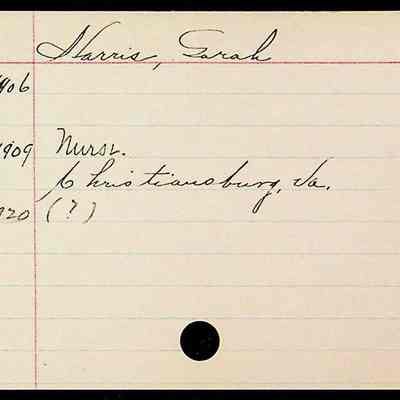 Harris, Sarah
1906
1909 Nurse.
Christiansburg, Va.
1920 (?)